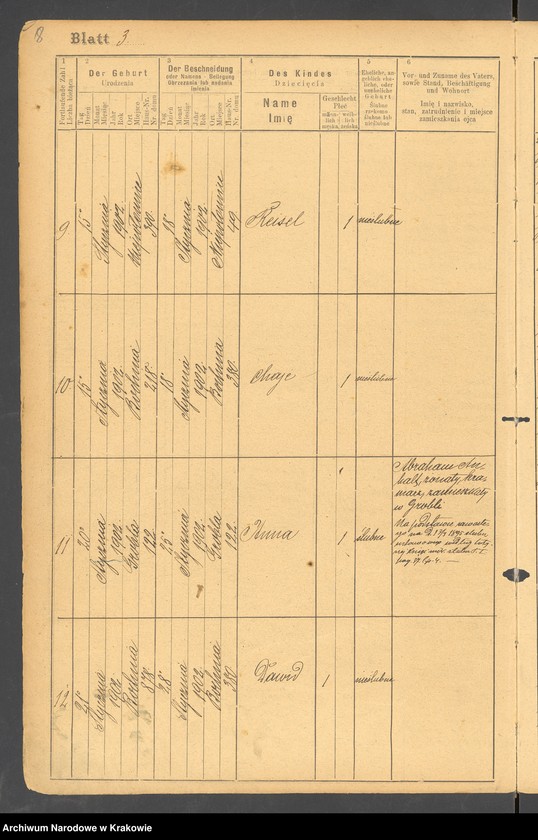 8
Blatt 3.
1
Fortlaufende Zahl
Liczba bieżąca
2
Der Geburt
Urodzenia
Tag
Dzień
Monat
Miesiąc
Jahr
Rok
Ort
Miejsce
Haus-Nr.
Nr. domu
3
Der Beschneidung
oder Namens-Beilegung
Obrzezania lub nadania
imienia
Tag
Dzień
Monat
Miesiąc
Jahr
Rok
Ort
Miejsce
Haus-Nr.
Nr. domu
4
Des Kindes
Dziecięcia
Name
Imię
Geschlecht
Płeć
5
Eheliche, an-
geblich ehe-
liche, oder
uneheliche
Geburt
Ślubne
rzekomo
ślubne lub
nieślubne
6
Vor- und Zuname des Vaters,
sowie Stand, Beschäftigung
und Wohnort
Imię i nazwisko,
stan, zatrudnienie i miejsce
zamieszkania ojca
9
15
Stycznia
1902
380
18
Stycznia
1902
49
Reisel
1
nieślubne
10
15
Stycznia
1902
Bochnia
218
18
Stycznia
1902
Bochnia
380
Chaje
1
nieślubne
11
20
Stycznia
1902
Grobla
122
25
Stycznia
1902
Grobla
122
Anna
1
ślubne
Abraham
żonaty, kra-
marz, zamieszkały
w Grobli
Na podstawie
12
21
Stycznia
1902
Bochnia
28
Stycznia
1902
Bochnia
380
Dawid
1
nieślubne
Archiwum Narodowe w Krakowie